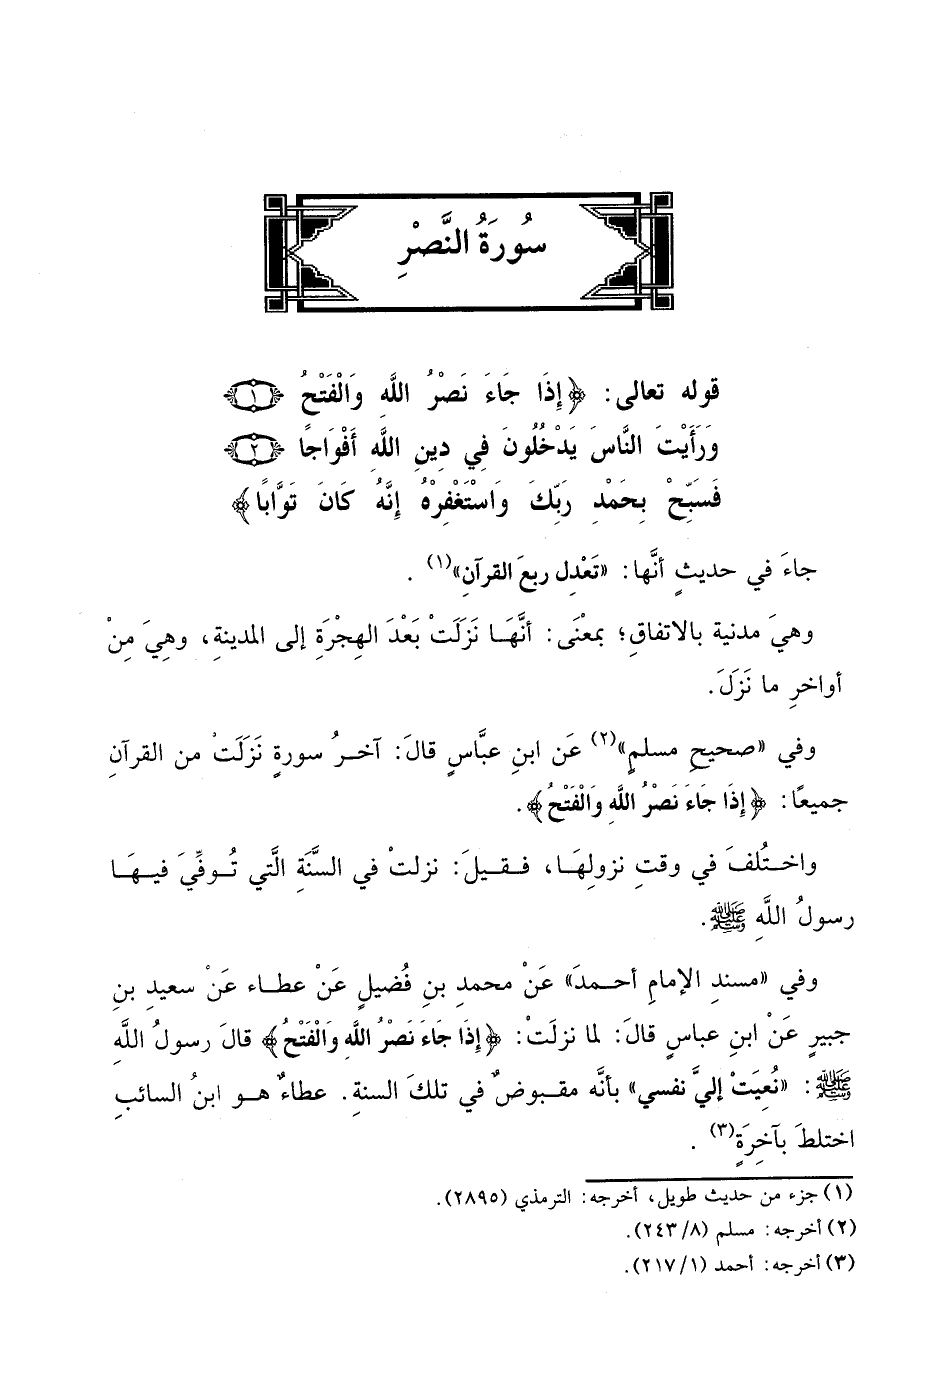 سُورَةُ النَّصْرِ
قوله تعالى: ﴿إِذَا جَاءَ نَصْرُ اللَّهِ وَالْفَتْحُ ﴿١﴾
وَرَأَيْتَ النَّاسَ يَدْخُلُونَ فِي دِينِ اللَّهِ أَفْوَاجًا ﴿٢﴾
فَسَبِّحْ بِحَمْدِ رَبِّكَ وَاسْتَغْفِرْهُ إِنَّهُ كَانَ تَوَّابًا﴾
جاءَ في حديثٍ أنَّها: «تَعْدِل ربعَ القرآنِ»(١) .
وهيَ مدنية بالاتفاقِ؛ بمعْنَى: أنَّهَا نَزَلَتْ بَعْدَ الهِجْرَةِ إلى المدينةِ، وهِيَ مِنْ
أواخرِ ما نَزَلَ.
وفي «صحيحِ مسلمٍ»(٢) عَن ابنِ عبَّاسٍ قالَ: آخرُ سورةٍ نَزَلَتْ من القرآنِ
جميعًا: ﴿إِذَا جَاءَ نَصْرُ اللَّهِ وَالْفَتْحُ﴾.
واختُلفَ في وقتِ نزولِهَا، فقيلَ: نزلتْ في السَّنَةِ الَّتي تُوفِّيَ فيهَا
رسولُ اللَّهِ ﷺ.
وفي «مسندِ الإمامِ أحمدَ» عَنْ محمدِ بنِ فُضيلٍ عَنْ عطاء عَنْ سعيدِ بنِ
جبيرٍ عَنْ ابنِ عباسٍ قالَ: لما نزلَتْ: ﴿إِذَا جَاءَ نَصْرُ اللَّهِ وَالْفَتْحُ﴾ قالَ رسولُ اللَّهِ
ﷺ: «نُعِيَتْ إليَّ نفسي» بأنَّه مقبوضٌ في تلكَ السنةِ. عطاءٌ هو ابنُ السائبِ
اختلطَ بآخِرَةٍ(٣) .
(١) جزء من حديث طويل، أخرجه: الترمذي (٢٨٩٥).
(٢) أخرجه: مسلم (٢٤٣/٨).
(٣) أخرجه: أحمد (٢١٧/١).